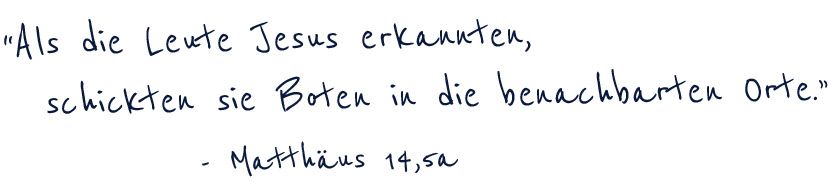 "Als die Leute Jesus erkannten,
schickten sie Boten in die benachbarten Orte."
- Matthäus 14,5a